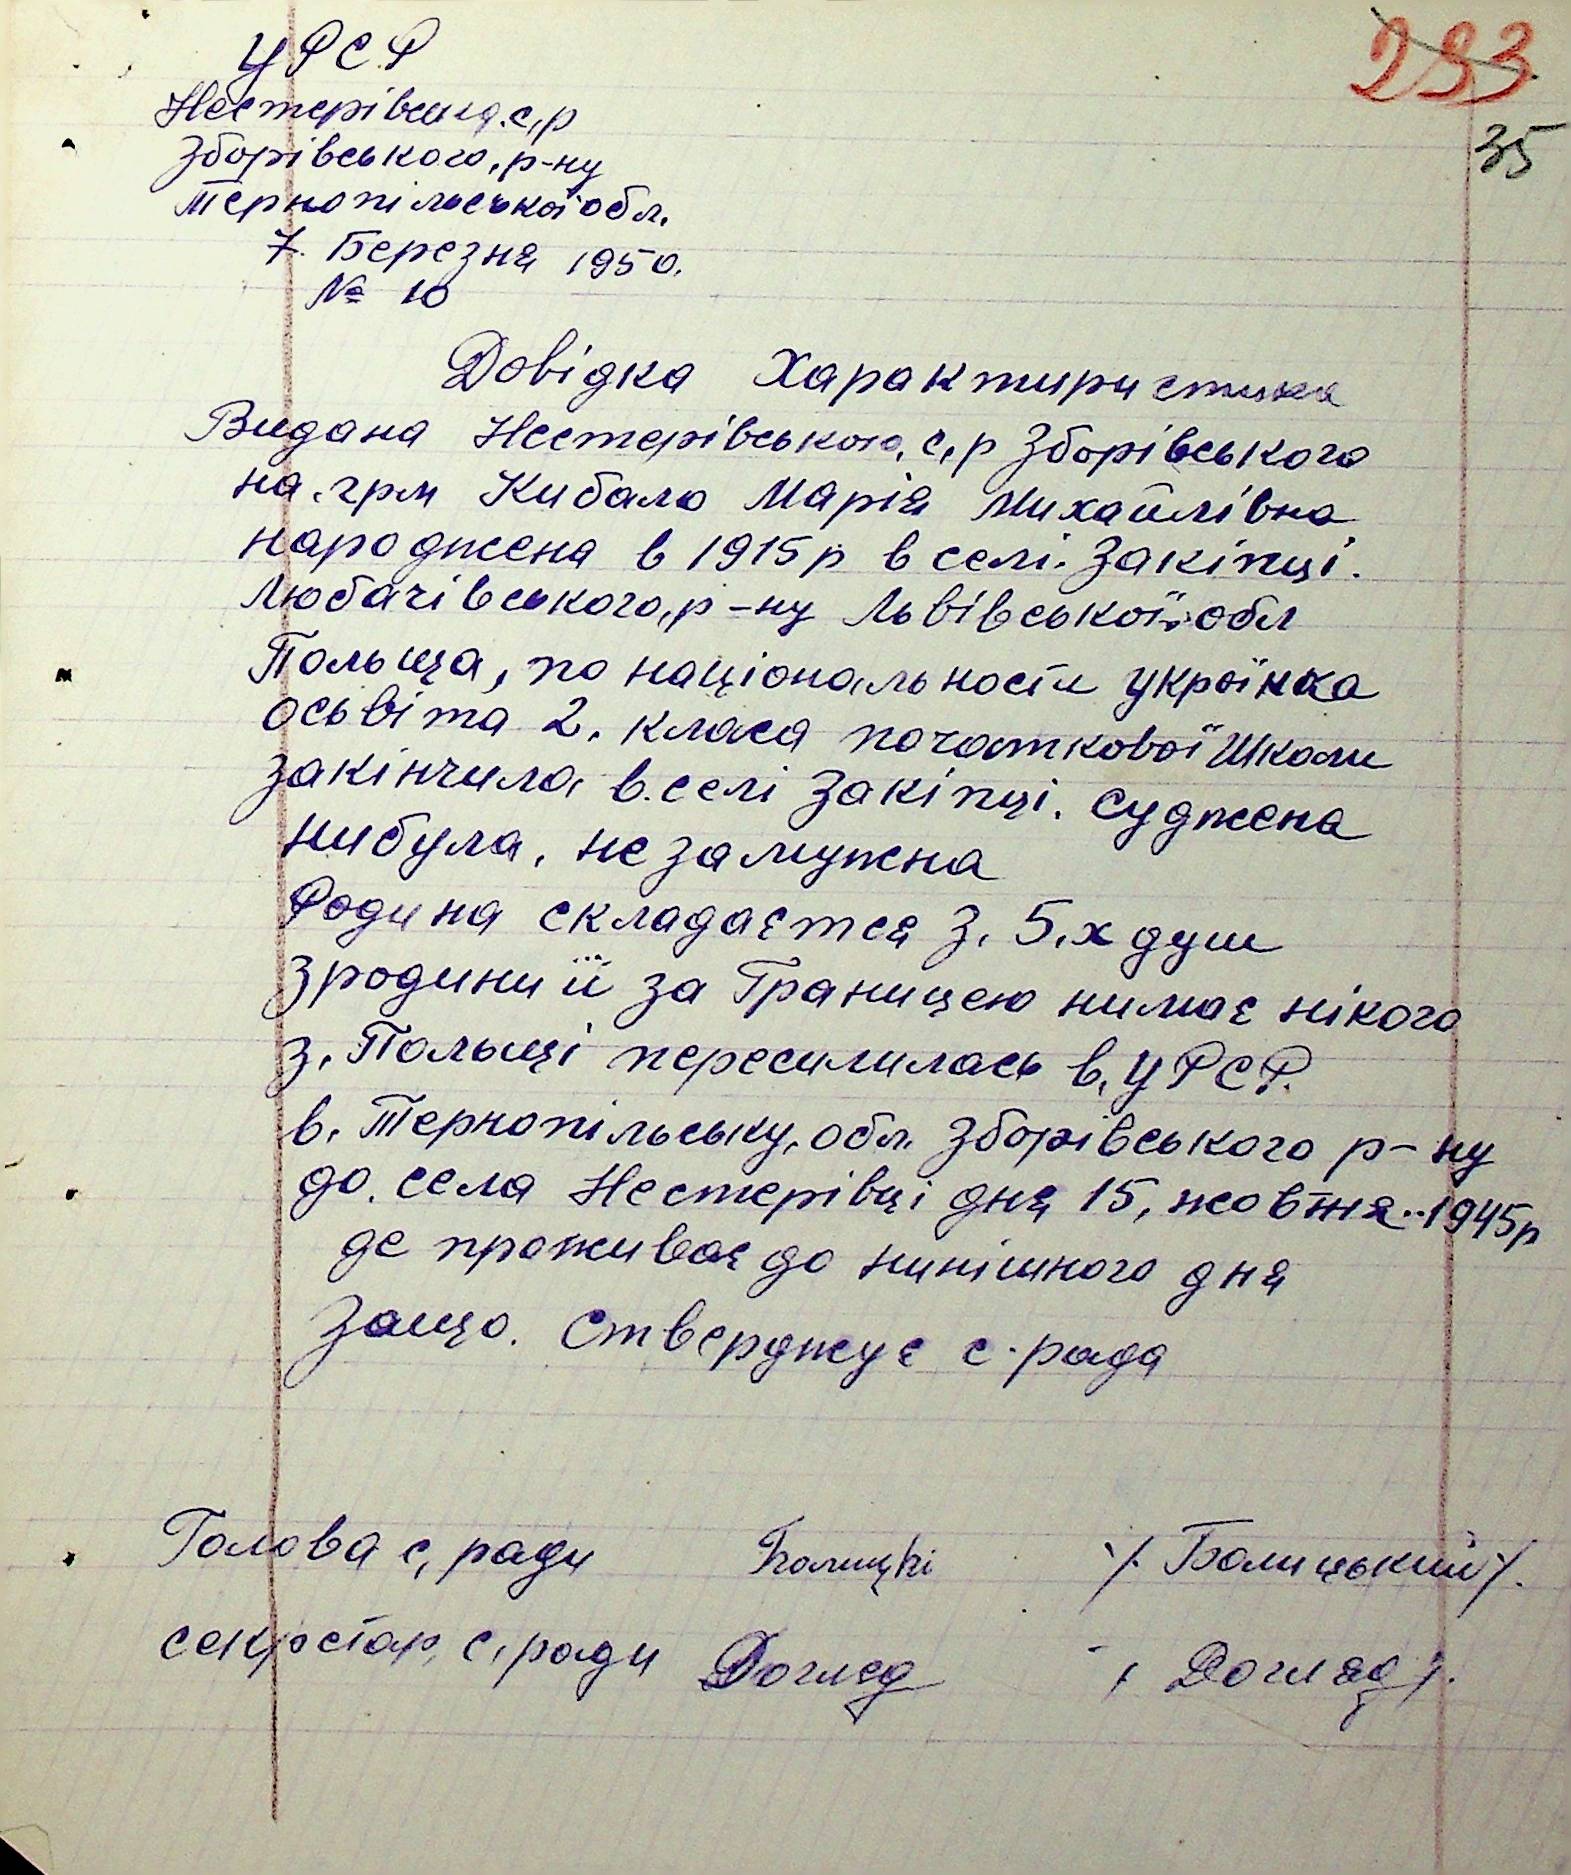 УРСР
293
Нестерівська с,р
35
Зборівського, р-ну
Тернопільської обл.
7. Березня 1950.
№ 10
Довідка Характиристика
Видана Нестерівською, с,р Зборівського
на. грм Кибало Марія Михайлівна
народжена в 1915р в селі. Закіпці.
Любачівського, р-ну Львівської, обл
Польща, по національности укрїнка
осьвіта 2. класа початкової Школи
закінчила в. селі Закіпці. суджена
нибула, не замужна
Родина складаєтся З. 5.х душ
зродини її за Границею нимає нікого
з. Польщі переси­лилась в. УРСР.
в. Тернопільську, обл. Зборівського р-ну
до. села Нестерівці дня 15, жовтня..1945р
де проживає до нинішного дня
Защо. Стверджує с. рада
Голова с, ради Балицкі /. Балицький /.
секретар, с, ради Догляд / Догляд /.